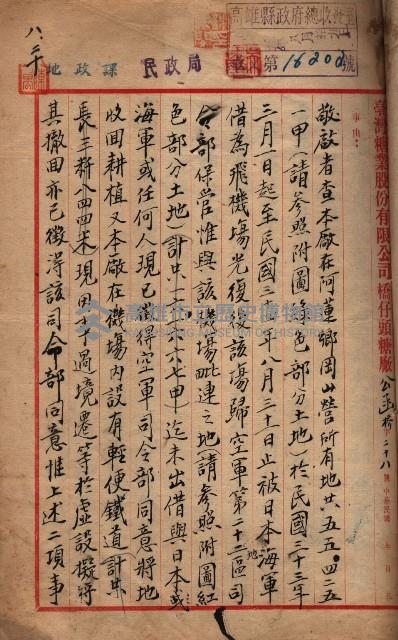 高雄縣政府總收文
第16200號
臺灣糖業股份有限公司橋仔頭糖廠
公函橋二十八
號中華民國 年 月 日
事由：
敬啟者查本廠在阿蓮鄉岡山營所有地廿八五五.四二五
一甲（請參照附圖綠色部分土地）於民國三十三年
三月一日起至民國三 年八月三十一日止被日本海軍
借為飛機場光復後該場地歸空軍第二十二區司
令部保管惟與該機場毗連之地（請參照附圖紅
色部分土地）計 甲迄未出借與日本
海軍或任何人現已獲得空軍司令部同意將地
收回耕植又本廠在機場內設有輕便鐵道計共
長三粁八四四米現因事過境遷等於虛設擬將
其撤回亦已徵得該司令部同意惟上述二項事
民政局
地政課
八.二十
高雄市立歷史博物館